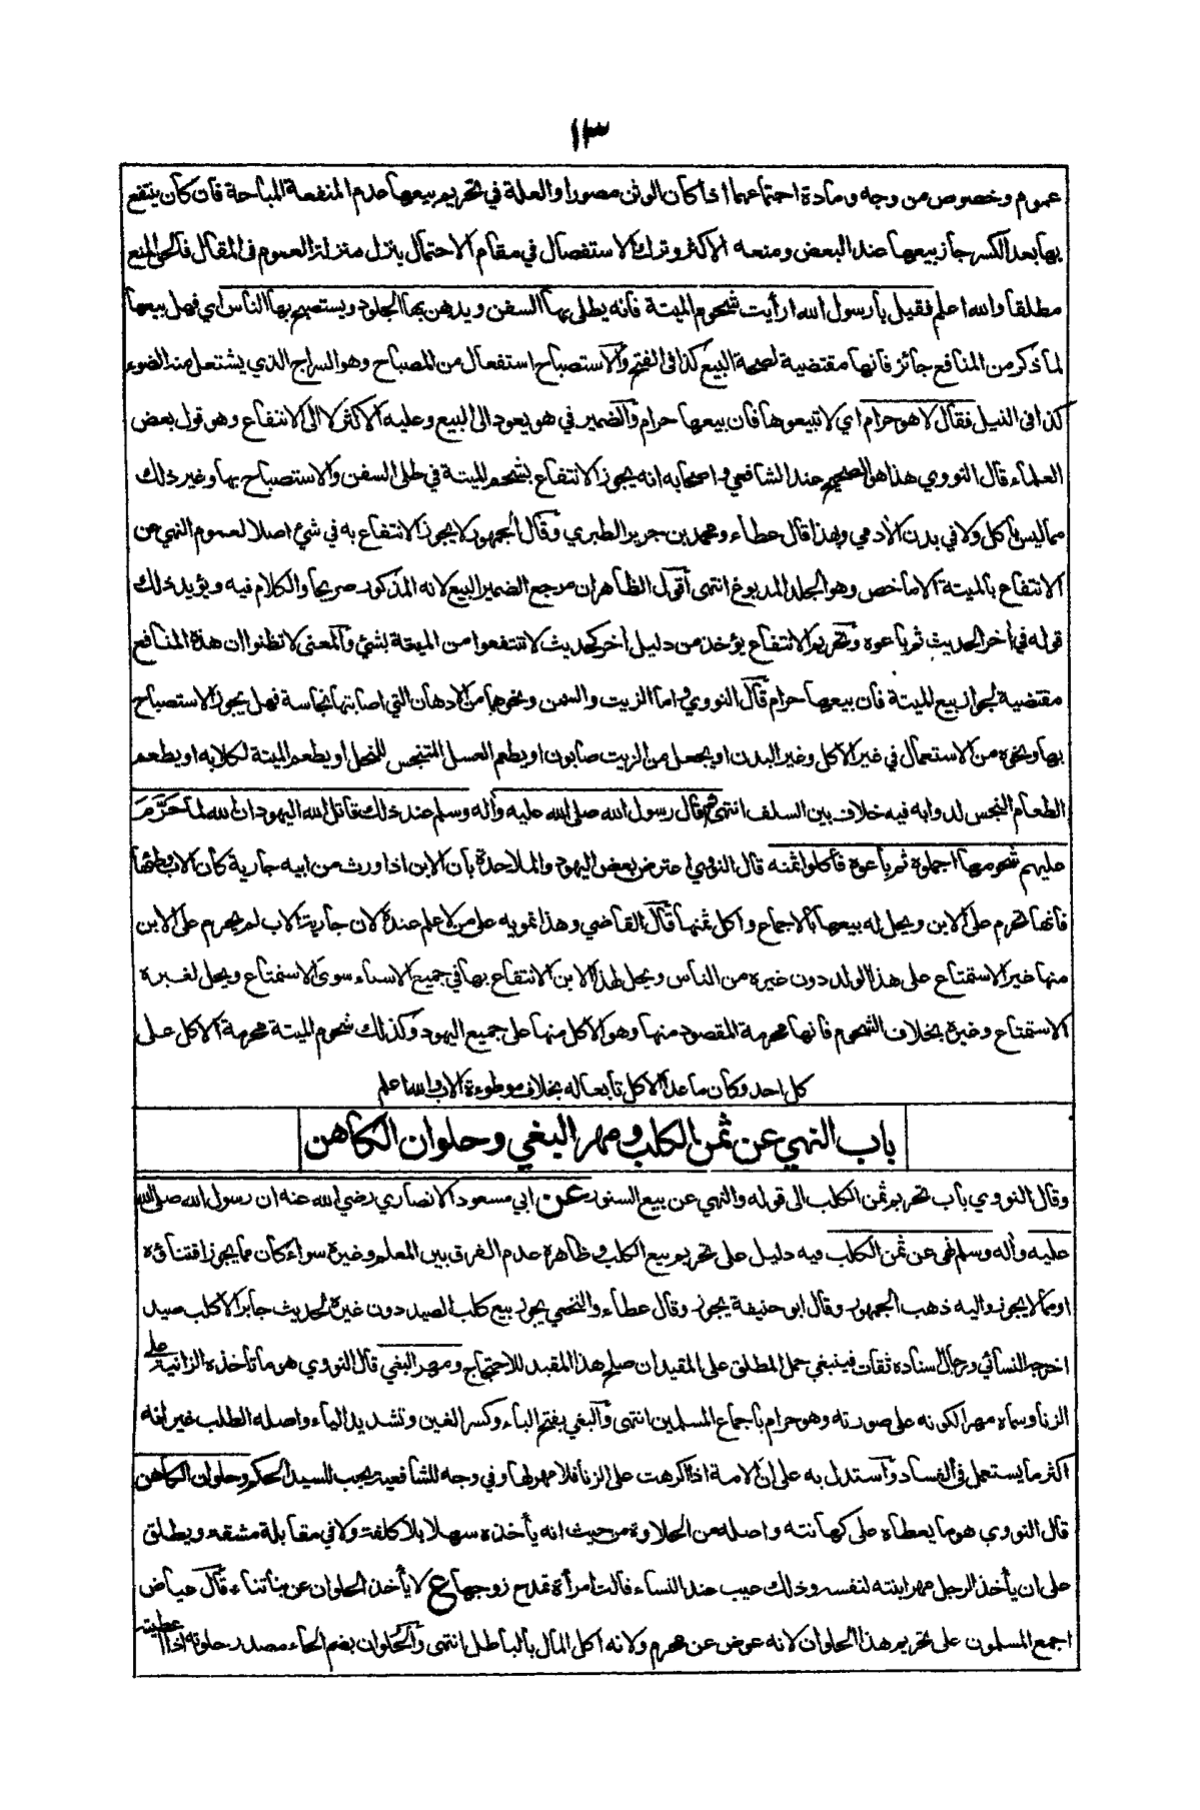 ١٣
عموم وخصوص من وجه ومادة اجتماعهما اذا كان الوثن مصورا والعلة في تحريم بيعها عدم المنفعة المباحة فان كان ينتفع
بها بعد الكسر جاز بيعها عند البعض ومنعه الاكثر وترك الاستفصال في مقام الاحتمال ينزل منزلة العموم في المقال فالحق المنع
مطلقا والله اعلم فقيل يا رسول الله ارأيت شحوم الميتة فانه يطلى بها السفن ويدهن بها الجلود ويستصبح بها الناس اي فهل بيعها
لما ذكر من المنافع جائز فانها مقتضية لصحة البيع كذا في الفتح والاستصباح استفعال من المصباح وهو السراج الذي يشتعل منه الضوء
كذا في النيل فقال لا هو حرام اي لا تبيعوها فان بيعها حرام والضمير في هو يعود الى البيع وعليه الاكثر لا الى الانتفاع وهو قول بعض
العلماء قال النووي هذا هو الصحيح عند الشافعي واصحابه انه يجوز الانتفاع بشحم الميتة في طلى السفن والاستصباح بها وغير ذلك
مما ليس بأكل ولا في بدن الأدمي وبهذا قال عطاء ومحمد بن جرير الطبري وقال الجمهور لا يجوز الانتفاع به في شئ اصلا لعموم النهي عن
الانتفاع بالميتة الا ما خص وهو الجلد المدبوغ انتهى أقول الظاهر ان مرجع الضمير البيع لانه المذكور صريحا والكلام فيه ويؤيد ذلك
قوله في أخر الحديث ثم باعوه وتحريم الانتفاع يؤخذ من دليل أخر كحديث لا تنتفعوا من الميتة بشئ والمعنى لا تظنوا ان هذة المنافع
مقتضية لجواز بيع الميتة فان بيعها حرام قال النووي واما الزيت والسمن ونحوهما من الادهان التي اصابتها نجاسة فهل يجوز الاستصباح
بها ونحوه من الاستعمال في غير الاكل وغير البدن او يجعل من الزيت صابون او يطعم العسل المتنجس للنحل او يطعم الميتة لكلابه او يطعم
الطعام النجس لدوابه فيه خلاف بين السلف انتهى ثم قال رسول الله صلى الله عليه وأله وسلم عند ذلك قاتل الله اليهود ان الله لما حَرَّمَ
عليهم شحومها اجملوه ثم باعوه فأكلوا ثمنه قال النووي اعترض بعض اليهود والملاحدة بان الابن اذا ورث من ابيه جارية كان الاب وطئها
فانها تحرم على الابن ويحل له بيعها بالاجماع واكل ثمنها قال القاضي وهذا تمويه على من لا علم عنده لان جارية الاب لم يحرم على الابن
منها غير الاستمتاع على هذا الولد دون غيره من الناس ويحل لهذا الابن الانتفاع بها في جميع الاشياء سوى الاستمتاع ويحل لغيره
الاستمتاع وغيره بخلاف الشحوم فانها محرمة المقصود منها وهو الاكل منها على جميع اليهود وكذلك شحوم الميتة محرمة الاكل على
كل احد وكان ما عدا الاكل تابعا له بخلاف موطوءة الاب والله اعلم
باب النهي عن ثمن الكلب ومهر البغي وحلوان الكاهن
وقال النووي باب تحريم ثمن الكلب الى قوله والنهي عن بيع السنور عن ابي مسعود الانصاري رضي الله عنه ان رسول الله صلى الله
عليه وأله وسلم نهى عن ثمن الكلب فيه دليل على تحريم بيع الكلب وظاهره عدم الفرق بين المعلم وغيره سواء كان مما يجوز اقتناؤه
او مما لا يجوز واليه ذهب الجمهور وقال ابو حنيفة يجوز وقال عطاء والنخعي يجوز بيع كلب الصيد دون غيره لحديث جابر الا كلب صيد
اخرجه النسائي ورجال اسناده ثقات فينبغي حمل المطلق على المقيد ان صلح هذا المقيد للاحتجاج ومهر البغي قال النووي هو ما تأخذه الزانية على
الزنا وسماه مهرا لكونه على صورته وهو حرام باجماع المسلمين انتهى والبغي بفتح الباء وكسر الغين وتشديد الياء واصله الطلب غير انه
اكثر ما يستعمل في الفساد واستدل به على ان الامة اذا اكرهت على الزنا فلا مهر لها وفي وجه للشافعية يجب للسيد الحكم وحلوان الكاهن
قال النووي هو ما يعطاه على كهانته واصله من الحلاوة من حيث انه يأخذه سهلا بلا كلفة ولا في مقابلة مشقة ويطلق
على ان يأخذ الرجل مهر ابنته لنفسه وذلك عيب عند النساء قالت امرأة تمدح زوجها ع لا يأخذ الحلوان عن بناتناء قال عياض
اجمع المسلمون على تحريم هذا الحلوان لانه عوض عن محرم ولانه اكل المال بالباطل انتهى والحلوان بضم الحاء مصدر حلوته اذا اعطيته